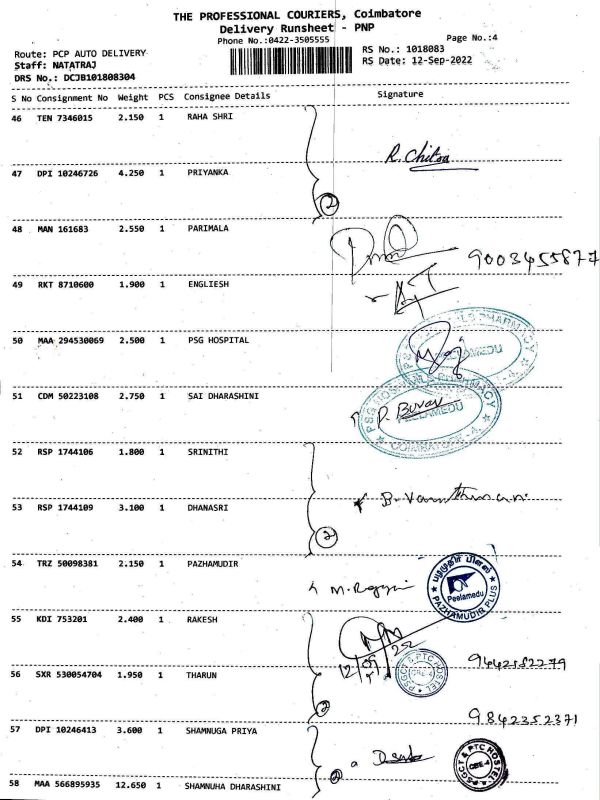 THE PROFESSIONAL COURIERS, Coimbatore
Delivery Runsheet - PNP
Phone No.:0422-3505555
Page No.:4
Route: PCP AUTO DELIVERY
RS No.: 1018083
Staff: NATATRAJ
RS Date: 12-Sep-2022
DRS No.: DCJB101808304
S No Consignment No Weight PCS Consignee Details Signature
46 TEN 7346015 2.150 1 RAHA SHRI
R. Chitra
47 DPI 10246726 4.250 1 PRIYANKA
2
48 MAN 161683 2.550 1 PARIMALA
9003455877
49 RKT 8710600 1.900 1 ENGLIESH
50 MAA 294530069 2.500 1 PSG HOSPITAL
PEELAMEDU
51 CDM 50223108 2.750 1 SAI DHARASHINI
PSG HOSPITALS PHARMACY
PEELAMEDU
COIMBATORE
52 RSP 1744106 1.800 1 SRINITHI
53 RSP 1744109 3.100 1 DHANASRI
2
54 TRZ 50098381 2.150 1 PAZHAMUDIR
Peelamedu
PAZHAMUDIR PLUS
55 KDI 753201 2.400 1 RAKESH
12/09/22
56 SXR 530054704 1.950 1 THARUN
9442582279
PSGCT & PTC HOSTEL
CBE-4
2
9842352371
57 DPI 10246413 3.600 1 SHAMNUGA PRIYA
PSGCT & PTC HOSTEL
CBE-4
2
58 MAA 566895935 12.650 1 SHAMNUHA DHARASHINI